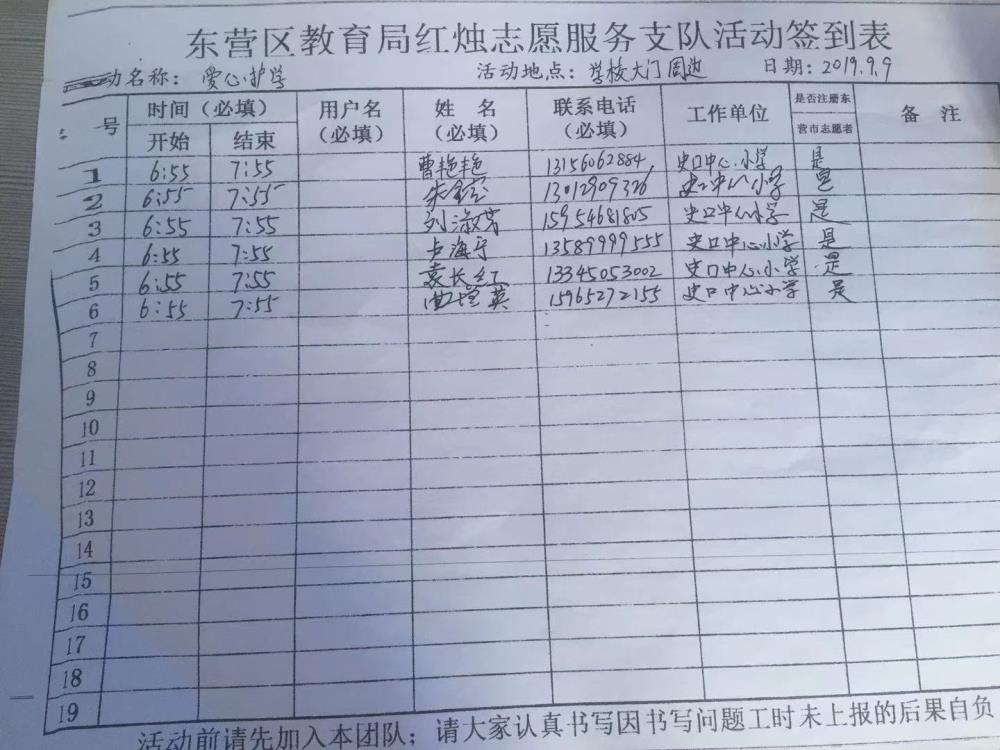 东营区教育局红烛志愿服务支队活动签到表
动名称：爱心护学 活动地点：学校大门周边 日期：2019.9.9
号 时间（必填） 用户名（必填） 姓名（必填） 联系电话（必填） 工作单位 是否注册东营市志愿者 备注
开始 结束
1 6:55 7:55 曹艳艳 13156062884 史口中心小学 是
2 6:55 7:55 13012909326 史口中心小学 是
3 6:55 7:55 刘淑芳 15954681805 史口中心小学 是
4 6:55 7:55 卢海宁 13589999555 史口中心小学 是
5 6:55 7:55 袁长红 13345053002 史口中心小学 是
6 6:55 7:55 英 15965272155 史口中心小学 是
7
8
9
10
11
12
13
14
15
16
17
18
19
活动前请先加入本团队；请大家认真书写因书写问题工时未上报的后果自负